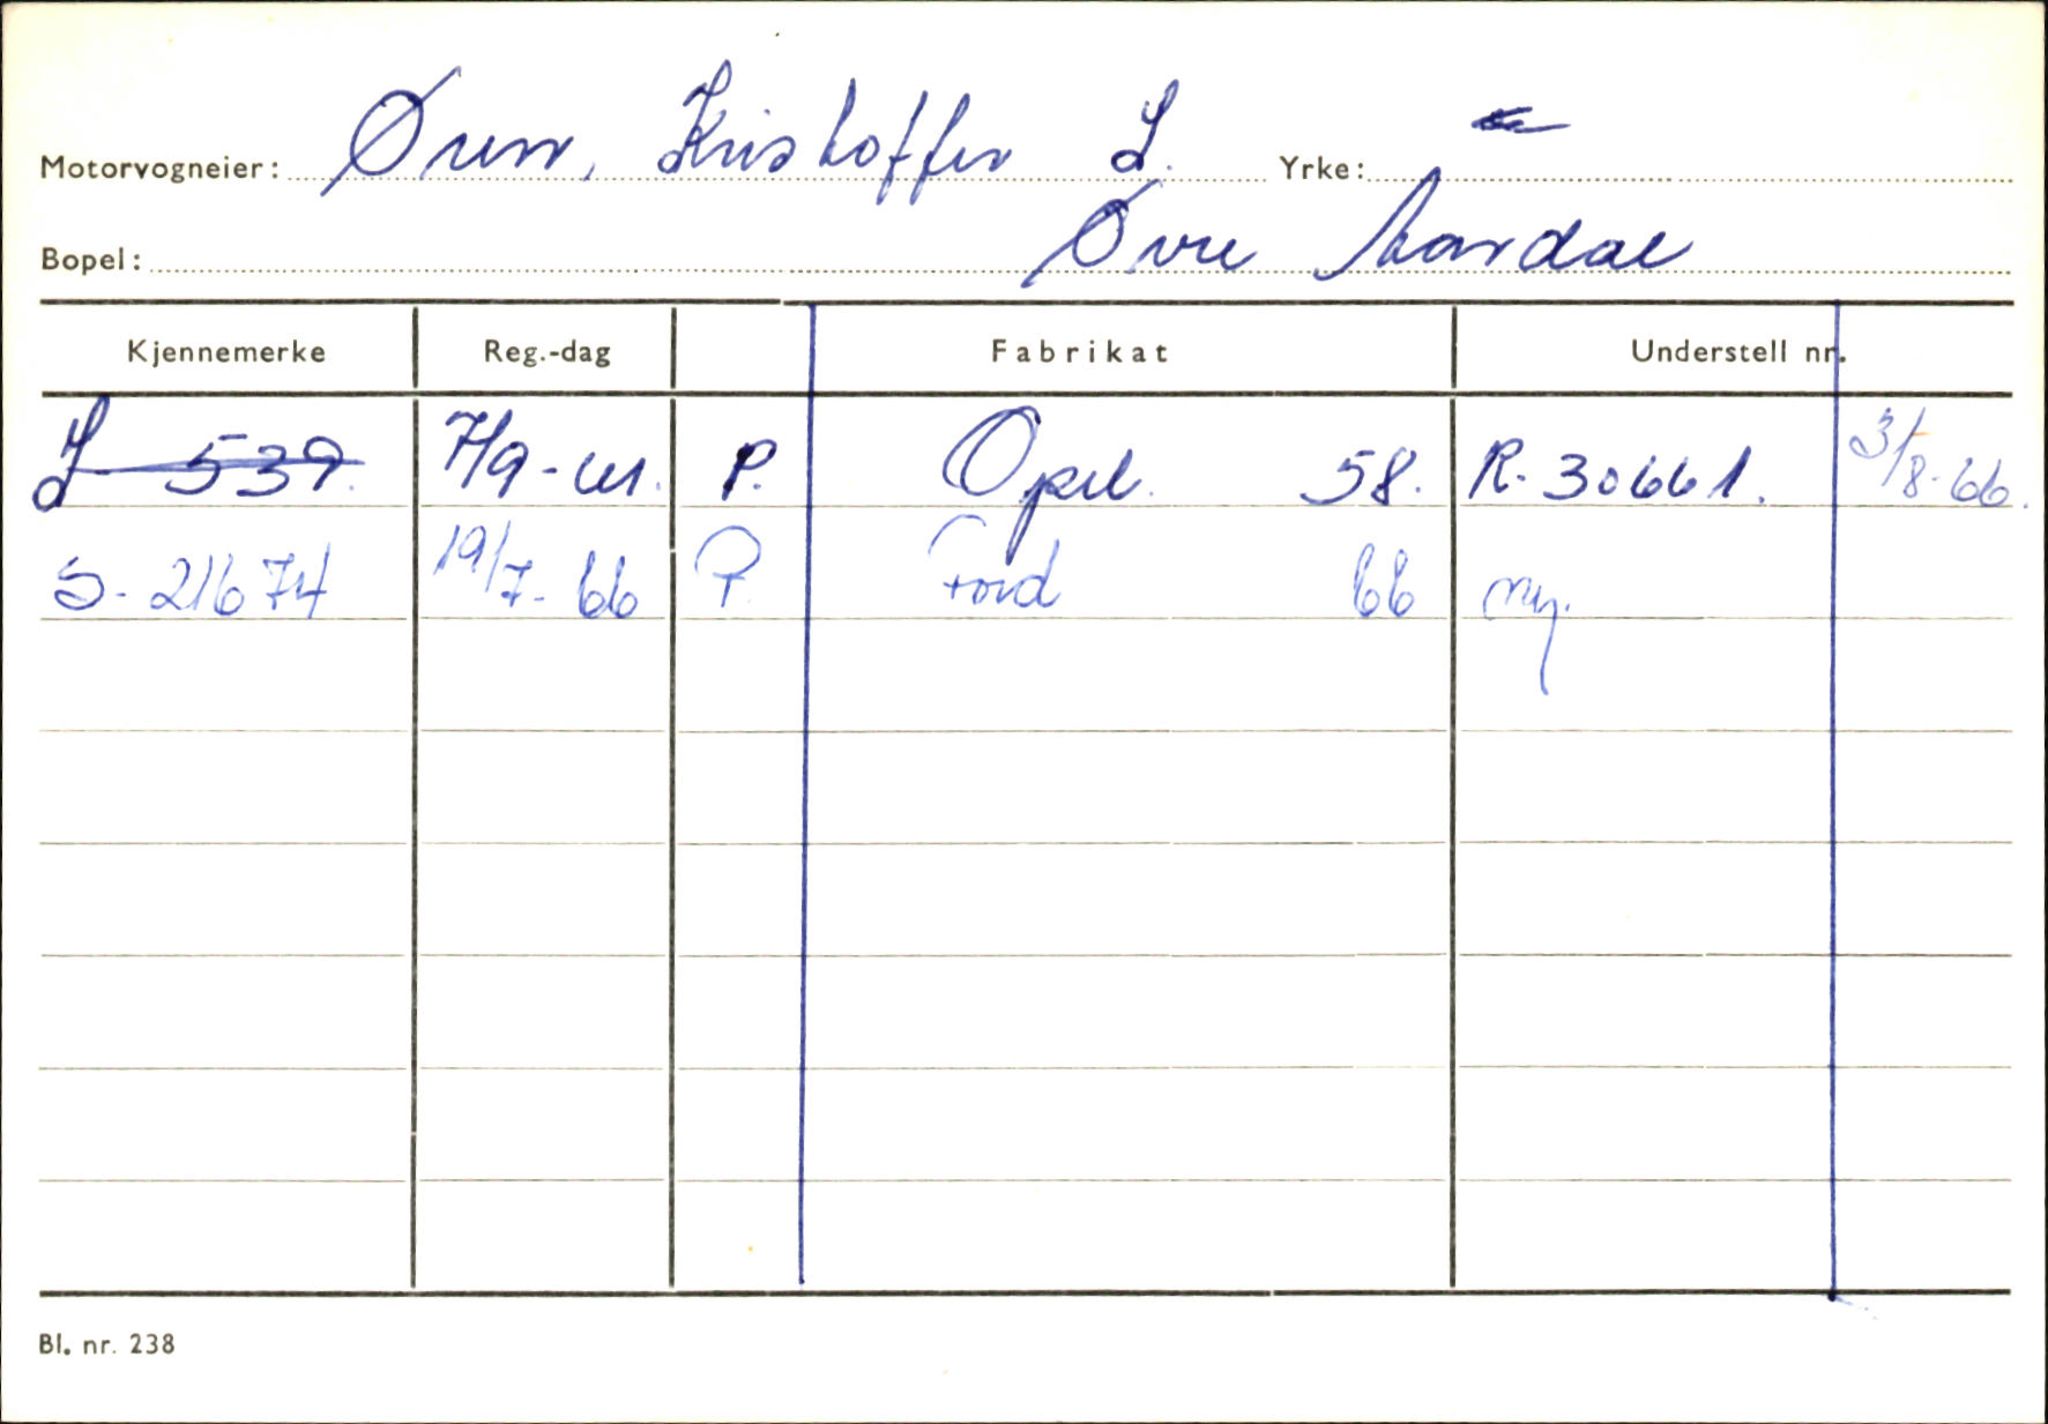 Motorvogneier: Øren, Kristoffer L. Yrke:
Bopel: Øvre Aardal
Kjennemerke Reg.-dag Fabrikat Understell nr.
S 539. 7/9-61. P. Opel. 58. R. 30661. 3/8-66.
S-21674 19/7-66 P. Ford 66 ny.
Bl. nr. 238